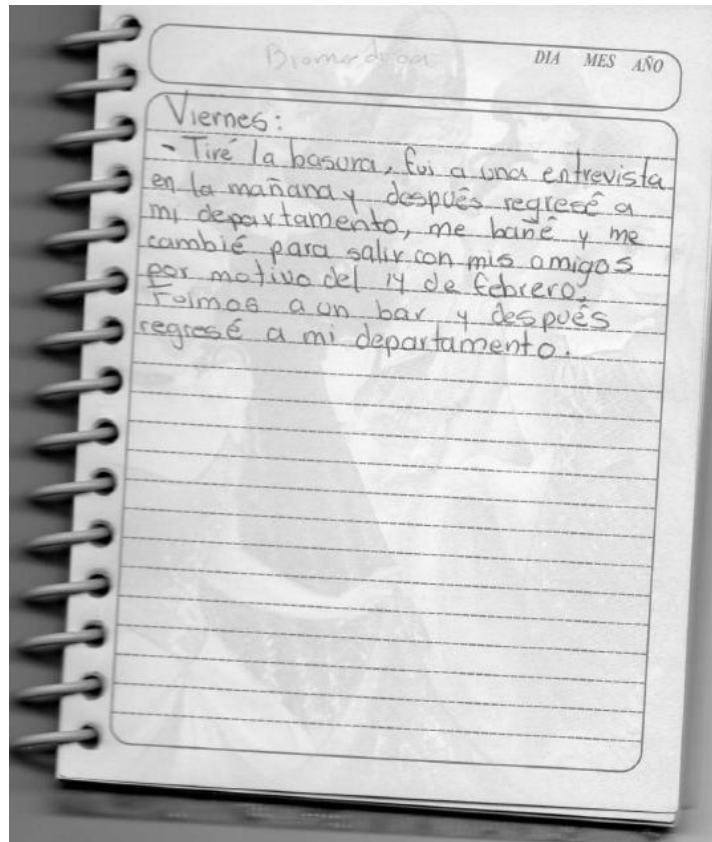 DIA MES AÑO
Viernes:
- Tiré la basura, fui a una entrevista
en la mañana y después regresé a
mi departamento, me bañé y me
cambié para salir con mis amigos
por motivo del 14 de febrero.
Fuimos a un bar y después
regresé a mi departamento.